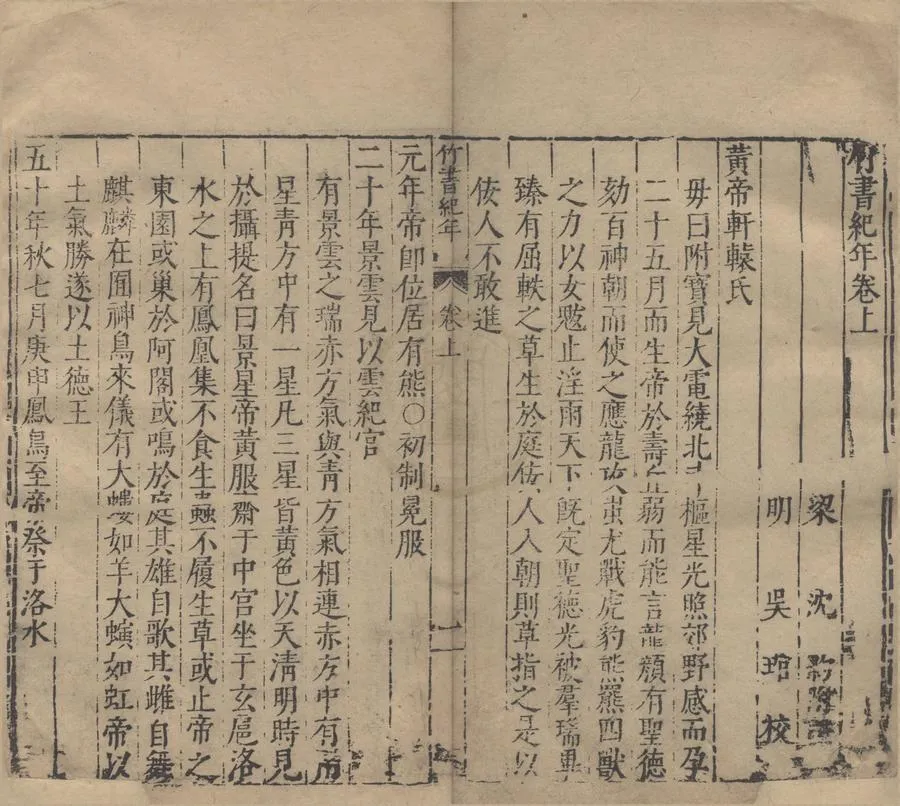 竹書紀年卷上
梁　沈　約附註
明　吳　琯　校
黃帝軒轅氏
毋曰附寶見大電繞北斗樞星光照郊野感而孕
二十五月而生帝於壽丘弱而能言龍顏有聖德
劾百神朝而使之應龍攻蚩尤戰虎豹熊羆四獸
之力以女魃止淫雨天下既定聖德光被羣瑞畢
臻有屈軼之草生於庭佞人入朝則草指之是以
佞人不敢進
竹書紀年　卷上　一
元年帝卽位居有熊〇初制冕服
二十年景雲見以雲紀官
有景雲之瑞赤方氣與青方氣相連赤方中有兩
星青方中有一星凡三星皆黃色以天清明時見
於攝提名曰景星帝黃服齋于中宮坐于玄扈洛
水之上有鳳凰集不食生蟲不履生草或止帝之
東園或巢於阿閣或鳴於庭其雄自歌其雌自舞
麒麟在囿神鳥來儀有大螻如羊大螾如虹帝以
土氣勝遂以土德王
五十年秋七月庚申鳳鳥至帝祭于洛水